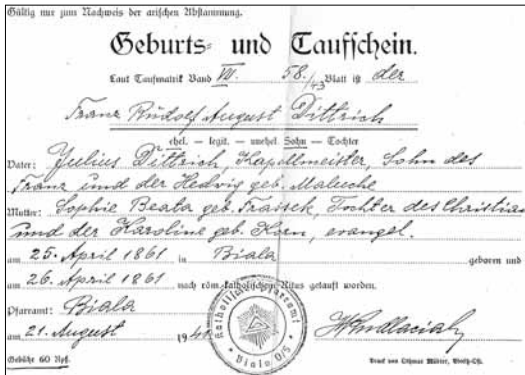 Gültig nur zum Nachweis der arischen Abstammung.
Geburts- und Taufschein.
Laut Taufmatrik Band VII. 58./43 Blatt ist der
Franz Rudolf August Dittrich
ehel. — legit. — unehel. Sohn — Tochter
Vater: Julius Dittrich, Kapellmeister, Sohn des
Franz und der Hedwig geb. Maluche
Mutter: Sophie Beata geb. Frassek, Tochter des Christian
und der Karoline geb. Korn, evangel.
am 25. April 1861 in Biala geboren und
am 26. April 1861 nach röm.-katholischem Ritus getauft worden.
Pfarramt: Biala
am 21. August 194
Katholisches Pfarramt
Biala O/S
Gebühr 60 Rpf.
Druck von Othmar